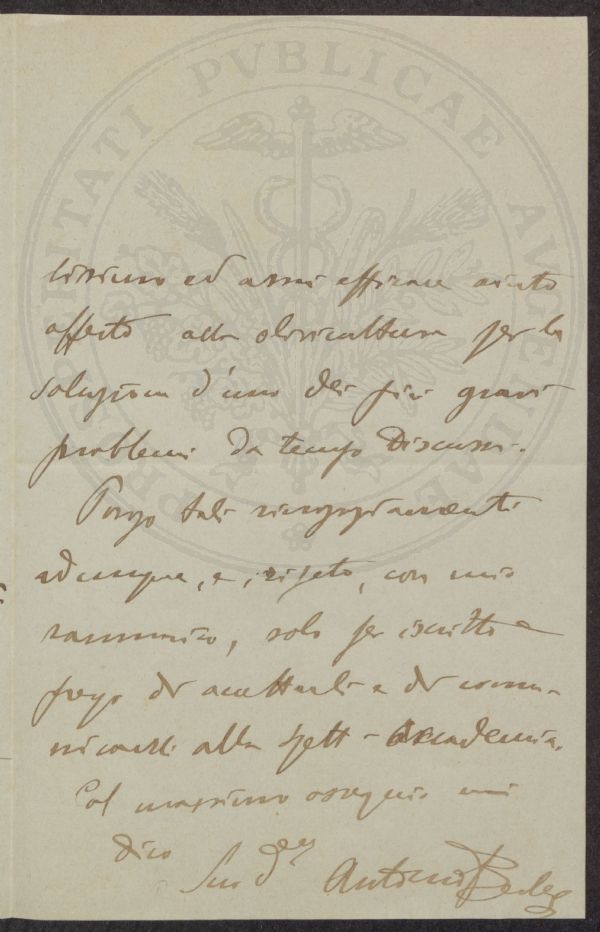 PROSPERITATI PVBLICAE AVGENDAE
lissimo ed assai efficace aiuto
offerto alla olivicultura per la
soluzione d'uno dei più gravi
problemi da tempo discussi.
Porgo tali ringraziamenti
adunque, e, ripeto, con mio
rammarico, solo per iscritto e
prego di accettarli e di comu-
nicarli alla spett. Accademia.
Col massimo ossequio mi
dico
Suo Antonio Berlese